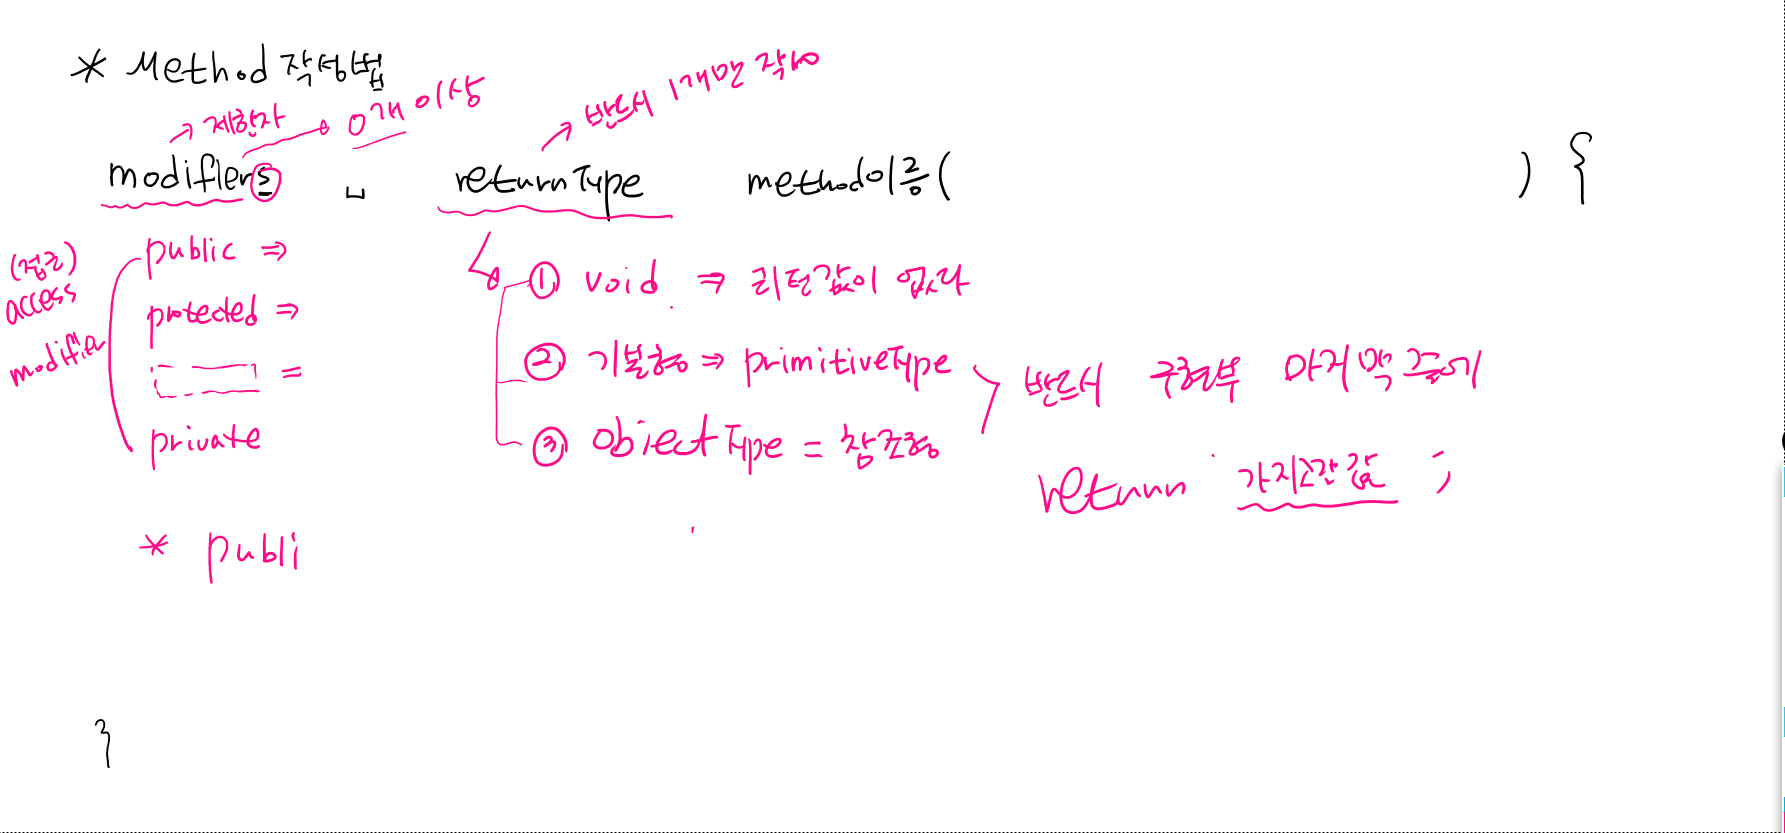 * Method 작성법
→ 제한자 → 0개 이상
→ 반드시 1개만 작성
modifiers ␣ returnType method이름( ) {
(접근) access modifier
public ⇒
protected ⇒
=
private
① void ⇒ 리턴값이 없다
② 기본형 ⇒ primitiveType
③ ObjectType = 참조형
반드시 구현부 마지막 줄에
return 가지고갈 값 ;
* publi
}